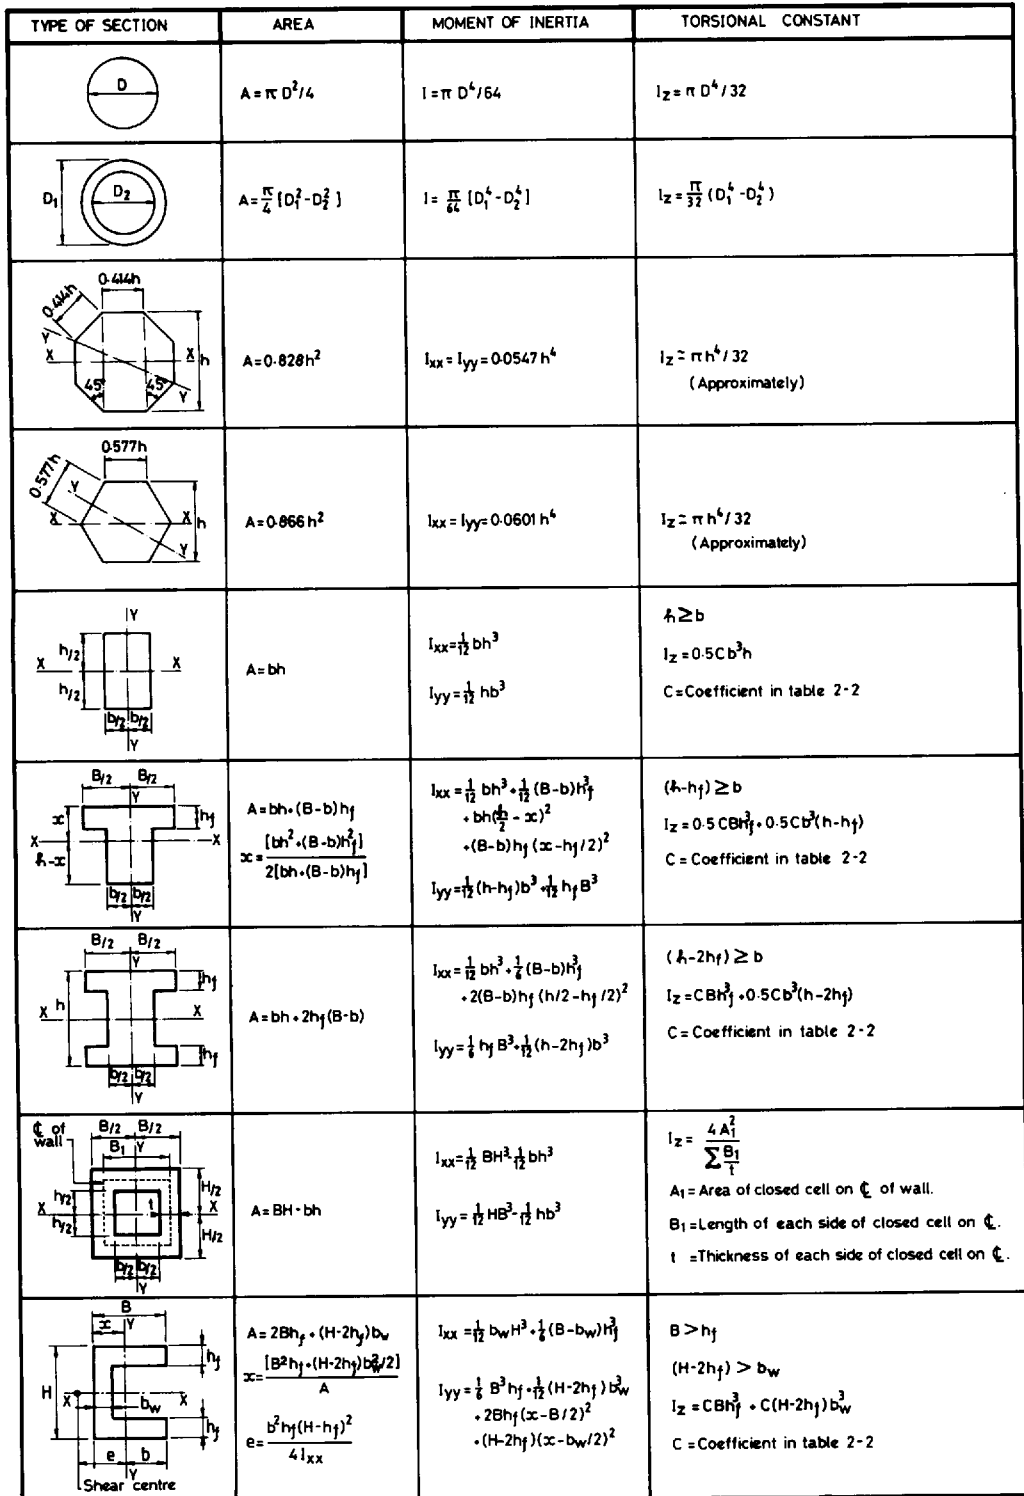 TYPE OF SECTION AREA MOMENT OF INERTIA TORSIONAL CONSTANT
D
A = π D²/4
I = π D⁴/64
I_Z = π D⁴/32
D₁ D₂
A = π/4 [D₁² - D₂²]
I = π/64 [D₁⁴ - D₂⁴]
I_Z = π/32 (D₁⁴ - D₂⁴)
0.414h
0.414h
Y
X X h
45° 45°
Y
A = 0.828h²
I_XX = I_YY = 0.0547 h⁴
I_Z ≃ π h⁴/32
(Approximately)
0.577h
0.577h
Y
X X h
Y
A = 0.866 h²
I_XX = I_YY = 0.0601 h⁴
I_Z ≃ π h⁴/32
(Approximately)
Y
h/2
X X
h/2
b/2 b/2
Y
A = bh
I_XX = 1/12 bh³
I_YY = 1/12 hb³
h ≥ b
I_Z = 0.5Cb³h
C = Coefficient in table 2-2
B/2 B/2
Y
x hf
X X
h-x
b/2 b/2
Y
A = bh + (B-b)hf
x = [bh² + (B-b)hf²] / 2[bh + (B-b)hf]
I_XX = 1/12 bh³ + 1/12 (B-b)hf³
+ bh(h/2 - x)²
+ (B-b)hf (x-hf/2)²
I_YY = 1/12 (h-hf)b³ + 1/12 hf B³
(h-hf) ≥ b
I_Z = 0.5CBhf³ + 0.5Cb³(h-hf)
C = Coefficient in table 2-2
B/2 B/2
Y
hf
X h X
hf
b/2 b/2
Y
A = bh + 2hf(B-b)
I_XX = 1/12 bh³ + 1/6 (B-b)hf³
+ 2(B-b)hf (h/2-hf/2)²
I_YY = 1/6 hf B³ + 1/12 (h-2hf)b³
(h-2hf) ≥ b
I_Z = CBhf³ + 0.5Cb³(h-2hf)
C = Coefficient in table 2-2
℄ of wall
B/2 B/2
B₁ Y
H/2
h/2
X t X
h/2
H/2
b/2 b/2
Y
A = BH - bh
I_XX = 1/12 BH³ - 1/12 bh³
I_YY = 1/12 HB³ - 1/12 hb³
I_Z = 4A₁² / Σ B₁/t
A₁ = Area of closed cell on ℄ of wall.
B₁ = Length of each side of closed cell on ℄.
t = Thickness of each side of closed cell on ℄.
B
x Y
hf
H
X X
bw
hf
e b
Y
Shear centre
A = 2Bhf + (H-2hf)bw
x = [B²hf + (H-2hf)bw²/2] / A
e = b²hf(H-hf)² / 4I_XX
I_XX = 1/12 bw H³ + 1/6 (B-bw)hf³
I_YY = 1/6 B³hf + 1/12 (H-2hf)bw³
+ 2Bhf(x-B/2)²
+ (H-2hf)(x-bw/2)²
B > hf
(H-2hf) > bw
I_Z = CBhf³ + C(H-2hf)bw³
C = Coefficient in table 2-2